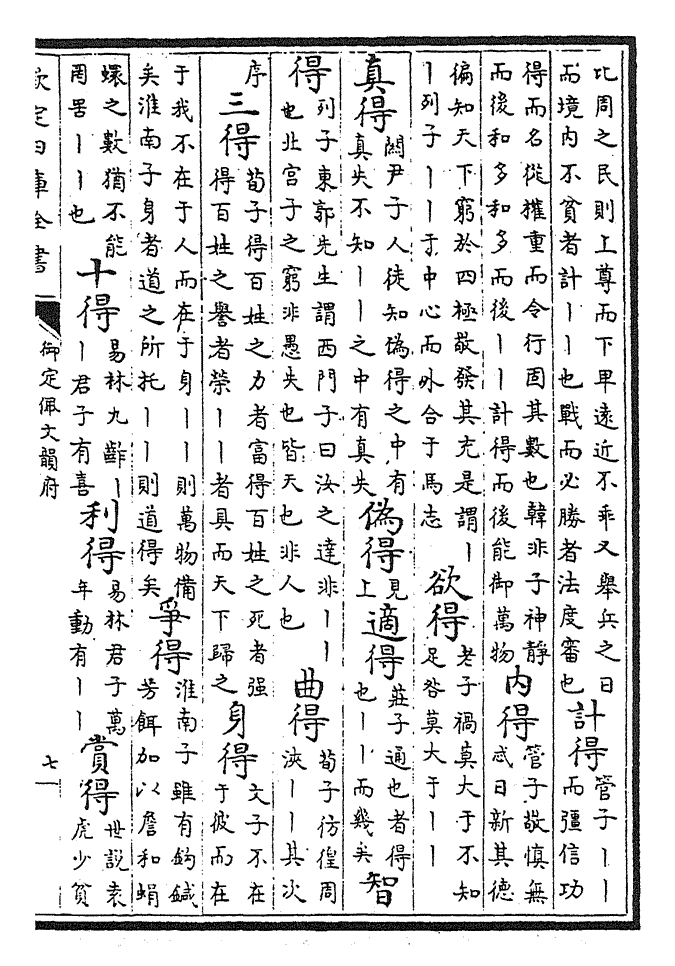 比周之民則上尊而下卑遠近不乖又舉兵之日
而境内不貧者計丨丨也戰而必勝者法度審也
計得
管子丨丨
而彊信功
得而名從權重而令行固其數也韓非子神靜
而後和多和多而後丨丨計得而後能御萬物
内得
管子敬慎無
忒日新其德
徧知天下窮於四極敬發其充是謂丨
丨列子丨丨于中心而外合于馬志
欲得
老子禍莫大于不知
足咎莫大于丨丨
真得
關尹子人徒知偽得之中有
真失不知丨丨之中有真失
偽得
見
上
適得
莊子通也者得
也丨丨而幾矣
智
得
列子東郭先生謂西門子曰汝之達非丨丨
也北宫子之窮非愚失也皆天也非人也
曲得
荀子彷徨周
浹丨丨其次
序
三得
荀子得百姓之力者富得百姓之死者强
得百姓之譽者榮丨丨者具而天下歸之
身得
文子不在
于彼而在
于我不在于人而在于身丨丨則萬物備
矣淮南子身者道之所托丨丨則道得矣
爭得
淮南子雖有鈎鍼
芳餌加以詹和蜎
蠉之數猶不能
罔罟丨丨也
十得
易林九齡丨
丨君子有喜
利得
易林君子萬
年動有丨丨
賞得
世說袁
虎少貧
欽定四庫全書
御定佩文韻府
七一